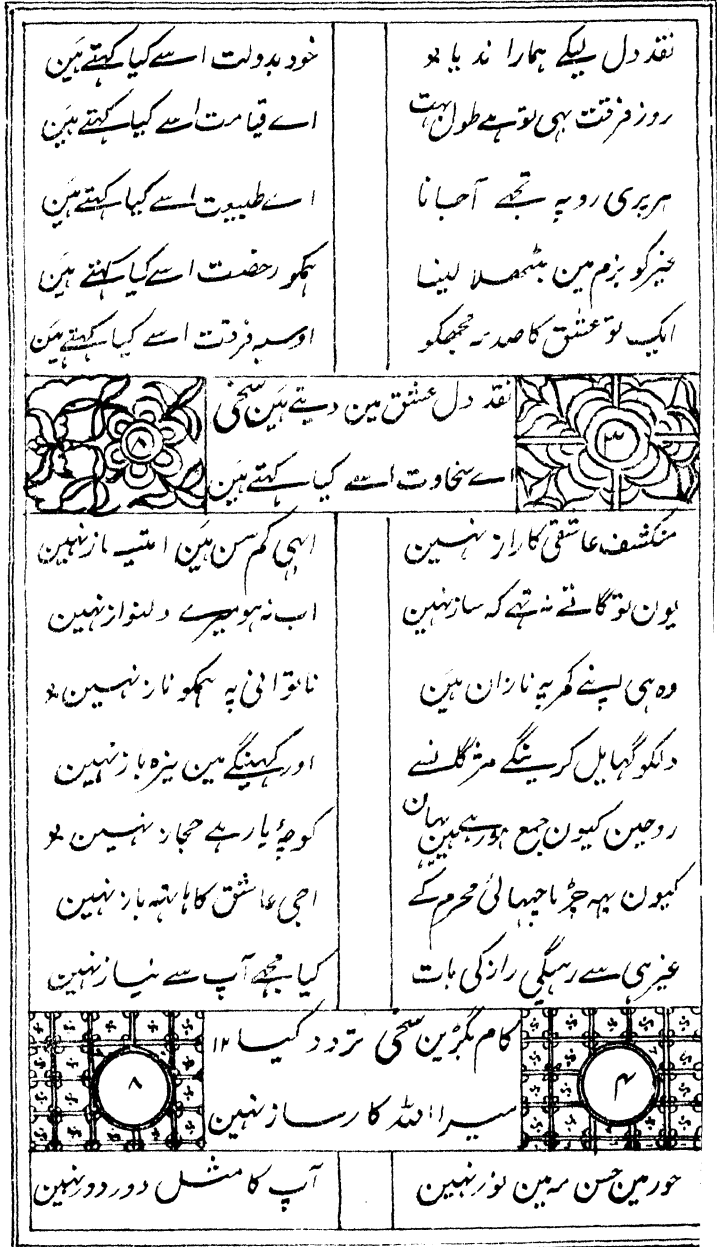 نقد دل لیکے ہمارا ند یا ہو خود بدولت اسے کیا کہتے ہین
روز فرقت بہی تو ہے طول بہت اے قیامت اسے کیا کہتے ہین
ہر پری رو پہ تجھے آجانا اے طبیعت اسے کیا کہتے ہین
غیر کو بزم مین بٹھلا لینا ہمکو رخصت اسے کیا کہتے ہین
ایک تو عشق کا صدمہ مجھکو اوسپہ فرقت اسے کیا کہتے ہین
نقد دل عشق مین دیتے ہین سخی
۳ ۸
اے سخاوت اسے کیا کہتے ہین
منکشف عاشقی کا راز نہین ابہی کم سن ہین امتیاز نہین
یون تو گاتے نہ تہے کہ ساز نہین اب نہ ہو میرے دلنواز نہین
وہ ہی اپنے کمر پہ نازان ہین ناتوانی پہ ہمکو ناز نہین
دلکو گہایل کرینگے مژگانسے اور کہینگے مین نیزہ باز نہین
روحین کیون جمع ہو رہے ہین یہان کوچۂ یار ہے حجاز نہین
کیون یہہ چڑیا چہپائی محرم کے اجی عاشق کا ہاتہہ باز نہین
غیر ہی سے رہیگی راز کی بات کیا مجھے آپ سے نیاز نہین
کام بگڑین سخی تردد کیا ۱۲
۴ ۸
میرا اللہ کارساز نہین
حور مین حسن ہین نور نہین آپ کا مثل دور دور نہین